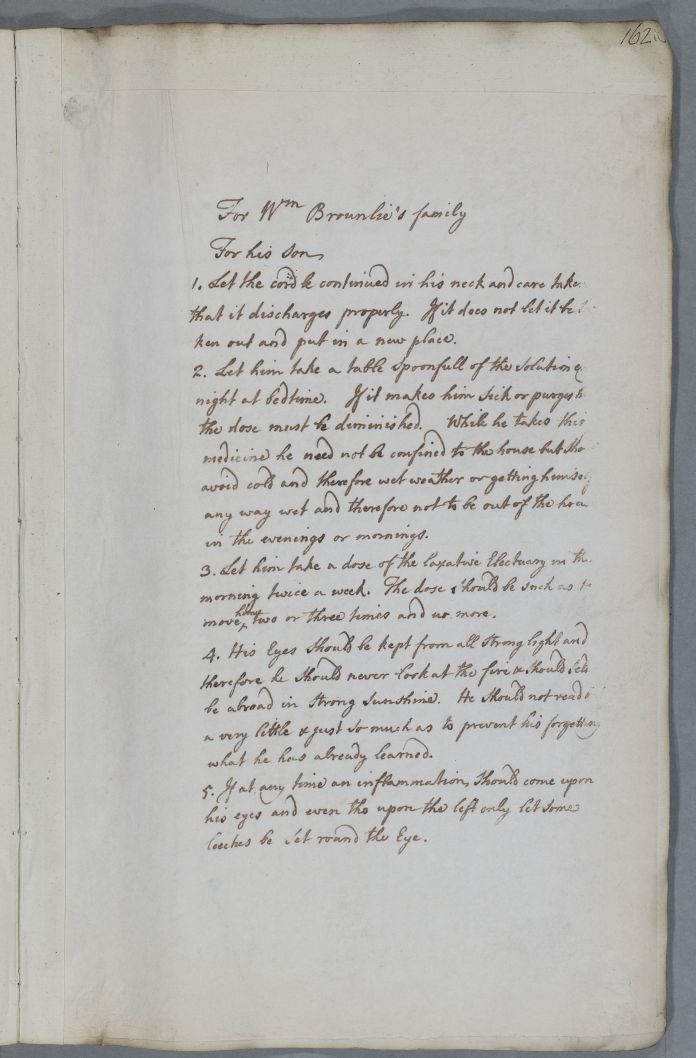 162
For Wm Brounlie's family
For his son
1. Let the cord be continued in his neck and care taken
that it discharges properly. If it does not let it be
ken out and put in a new place.
2. Let him take a table spoonfull of the solution
night at bedtime. If it makes him sick or purges
the dose must be diminished. While he takes this
medicine he need not be confined to the house but sho
avoid cold and therefore wet weather or getting himself
any way wet and therefore not to be out of the hou
in the evenings or mornings.
3. Let him take a dose of the laxative Electuary in the
morning twice a week. The dose should be such as to
move him two or three times and no more.
4. His Eyes should be kept from all strong light and
therefore he should never look at the fire & should seld
be abroad in strong sunshine. He should not read
a very little & just so much as to prevent his forgetting
what he has already learned.
5. If at any time an inflammation should come upon
his eyes and even tho upon the left only let some
leeches be set round the Eye.